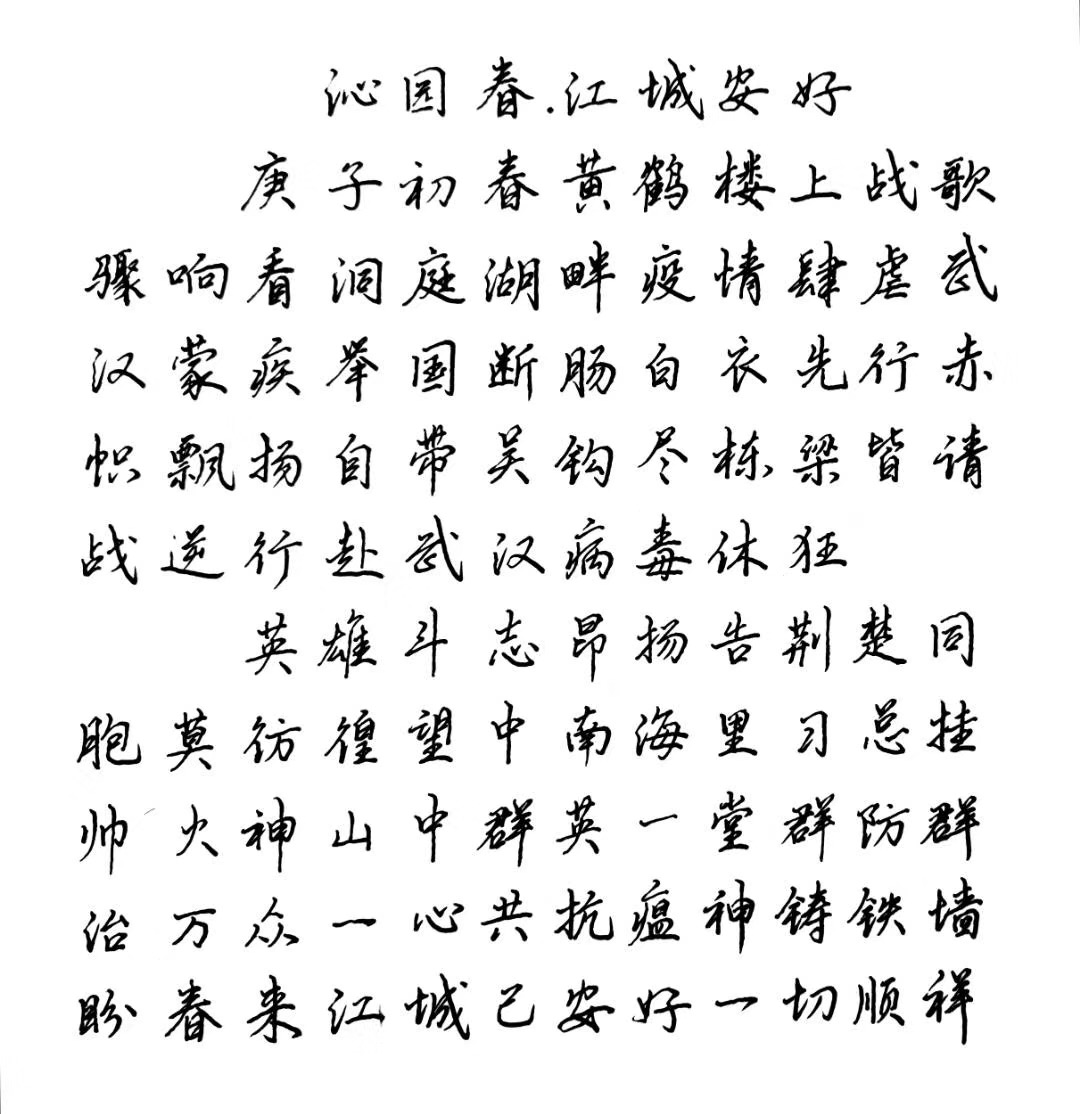 沁园春.江城安好
庚子初春黄鹤楼上战歌
骤响看洞庭湖畔疫情肆虐武
汉蒙疾举国断肠白衣先行赤
帜飘扬自带吴钩尽栋梁皆请
战逆行赴武汉病毒休狂
英雄斗志昂扬告荆楚同
胞莫彷徨望中南海里习总挂
帅火神山中群英一堂群防群
治万众一心共抗瘟神铸铁墙
盼春来江城已安好一切顺祥